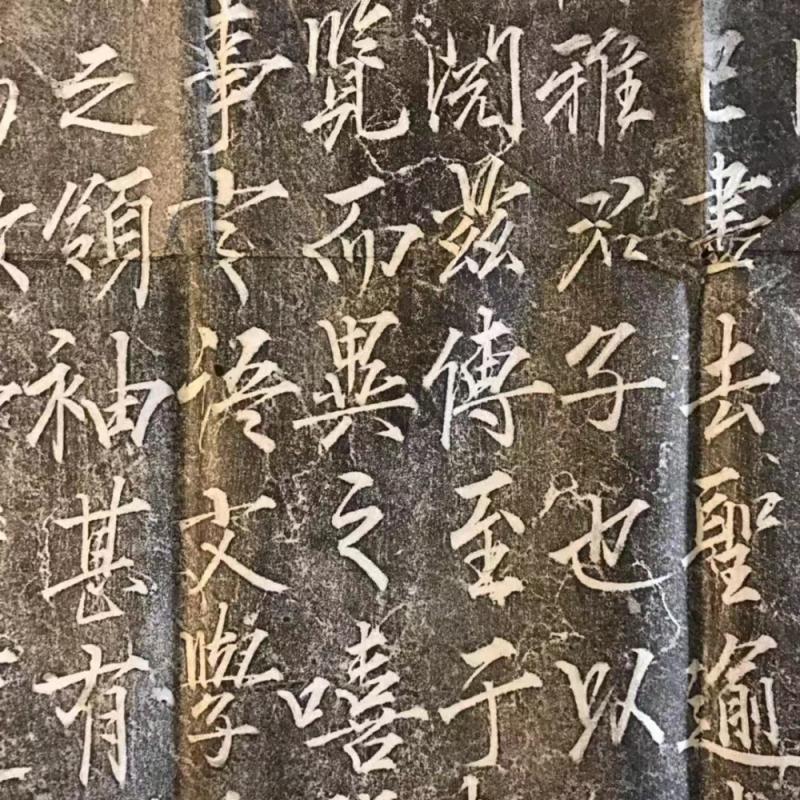 去聖逾
雅君子也以
閱茲傳至于
覽而異之嘻
事言語文學
之領袖甚有